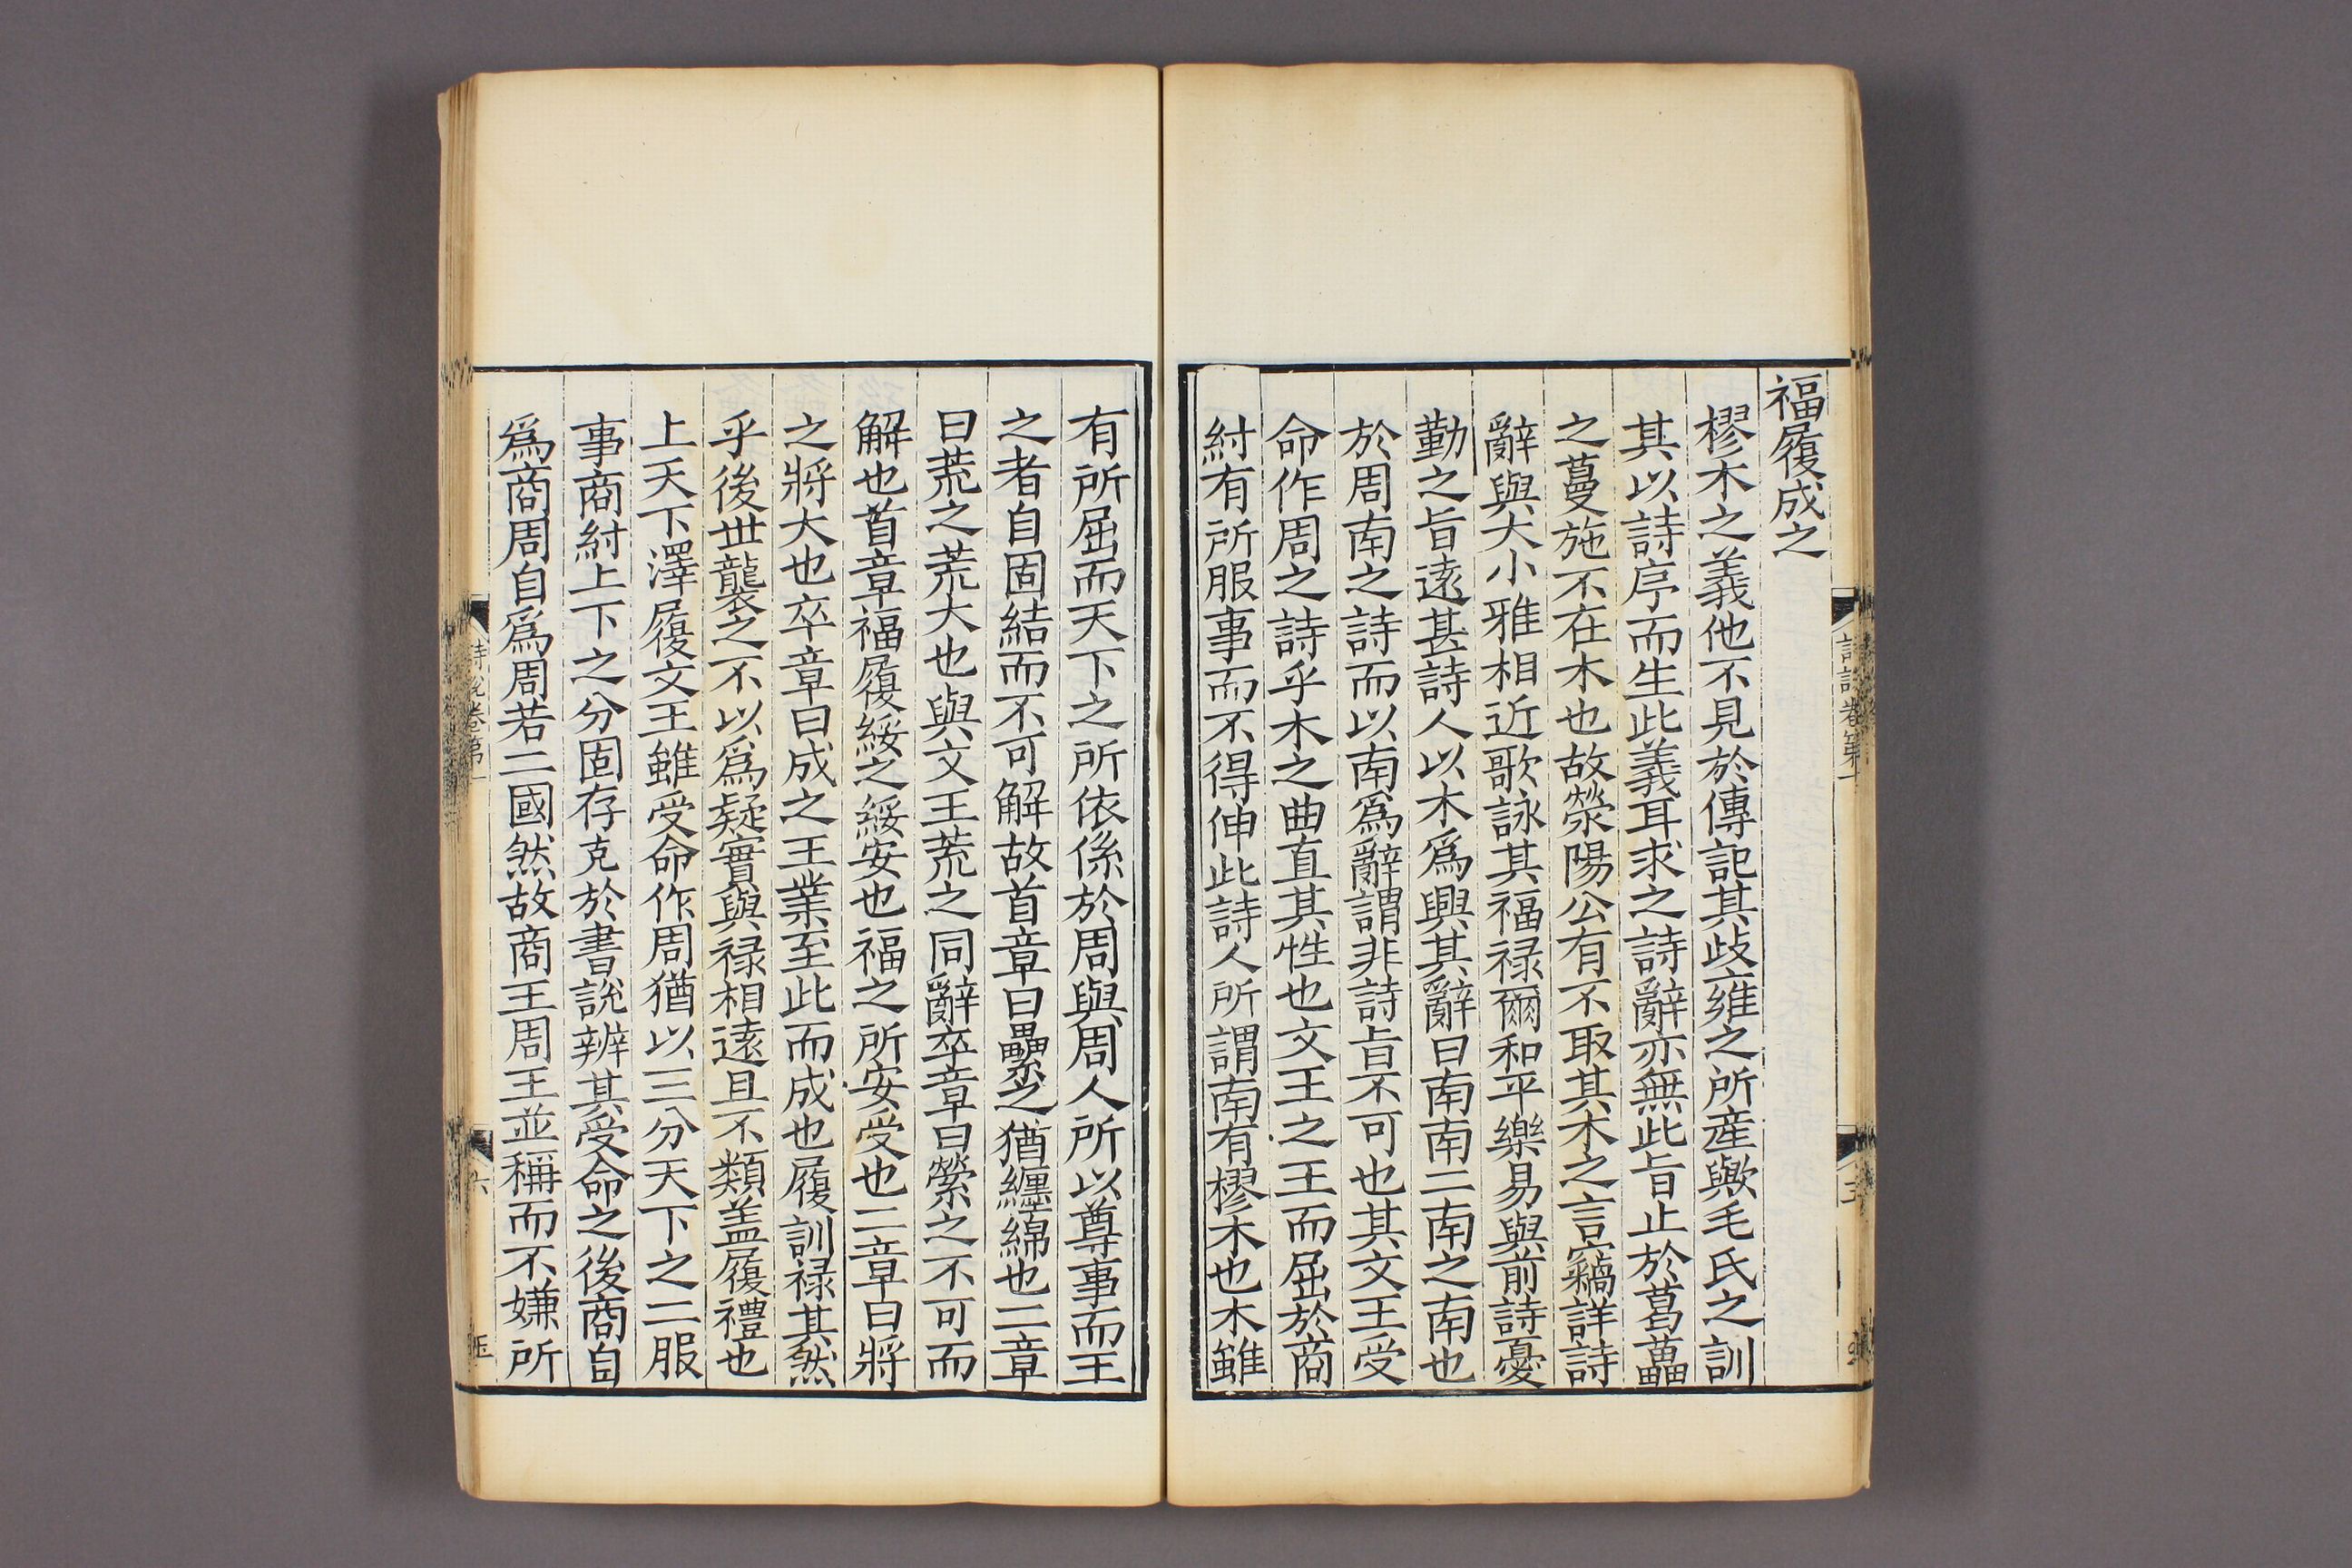 福履成之
樛木之義他不見於傳記其歧雍之所産歟毛氏之訓
其以詩序而生此義耳求之詩辭亦無此旨止於葛藟
之蔓施不在木也故滎陽公有不取其木之言竊詳詩
辭與大小雅相近歌詠其福禄爾和平樂易與前詩憂
勤之旨遠甚詩人以木爲興其辭曰南南二南之南也
於周南之詩而以南爲辭謂非詩旨不可也其文王受
命作周之詩乎木之曲直其性也文王之王而屈於商
紂有所服事而不得伸此詩人所謂南有樛木也木雖
有所屈而天下之所依係於周與周人所以尊事而王
之者自固結而不可解故首章曰纍之猶纏綿也二章
曰荒之荒大也與文王荒之同辭卒章曰縈之不可而
解也首章福履綏之綏安也福之所安受也二章曰將
之將大也卒章曰成之王業至此而成也履訓禄其然
乎後世襲之不以爲疑實與禄相遠且不類盖履禮也
上天下澤履文王雖受命作周猶以三分天下之二服
事商紂上下之分固存克於書說辨其受命之後商自
爲商周自爲周若二國然故商王周王並稱而不嫌所
詩說卷第一
六